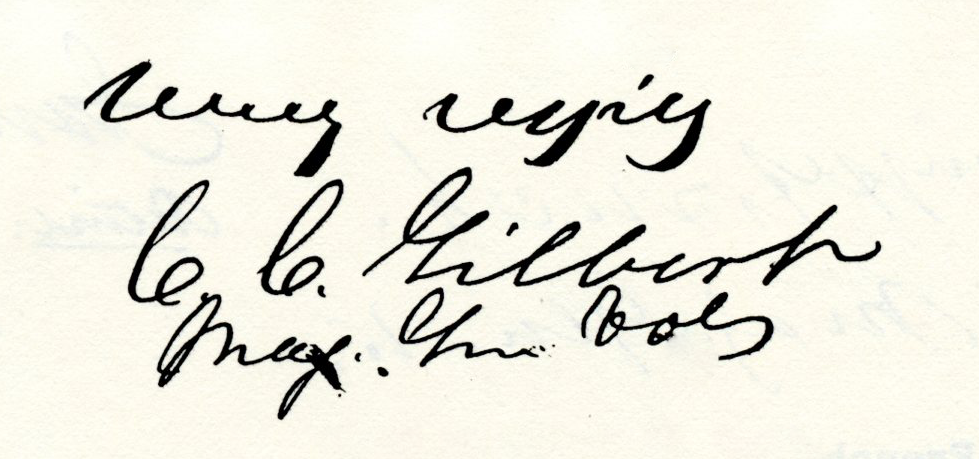 Very respy
C. C. Gilbert
Maj. Gen Vols